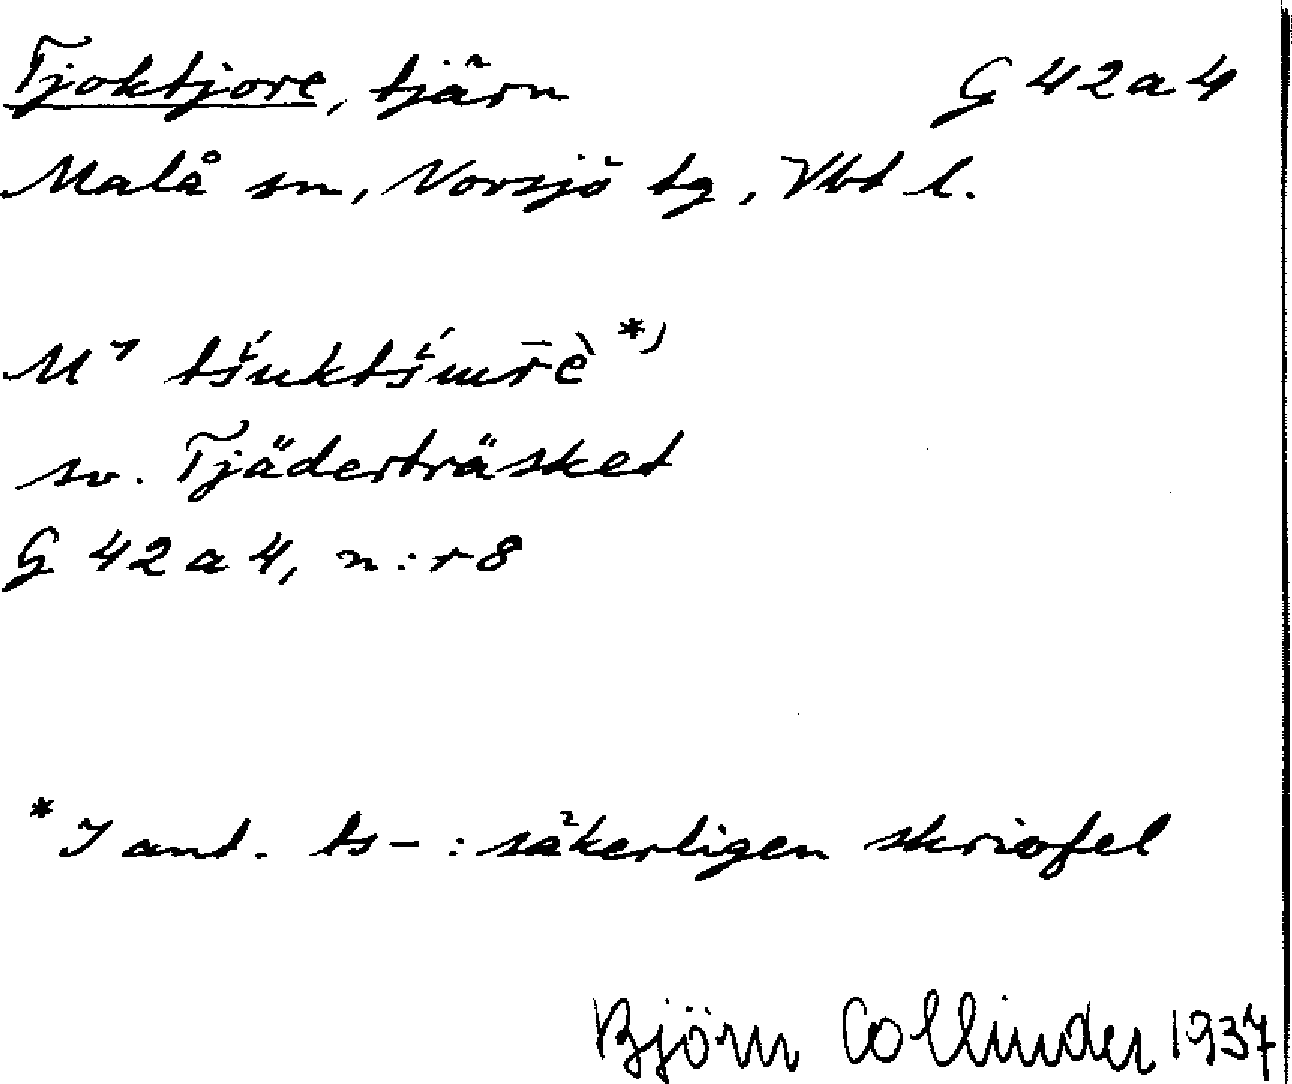 Tjoktjore, tjärn G 42 a 4
Malå sn, Norsjö tg, Vbt l.
sv. Tjäderträsket
G 42 a 4, n:r 8
* I ant. ts- : säkerligen skrivfel
Björn Collinder 1937